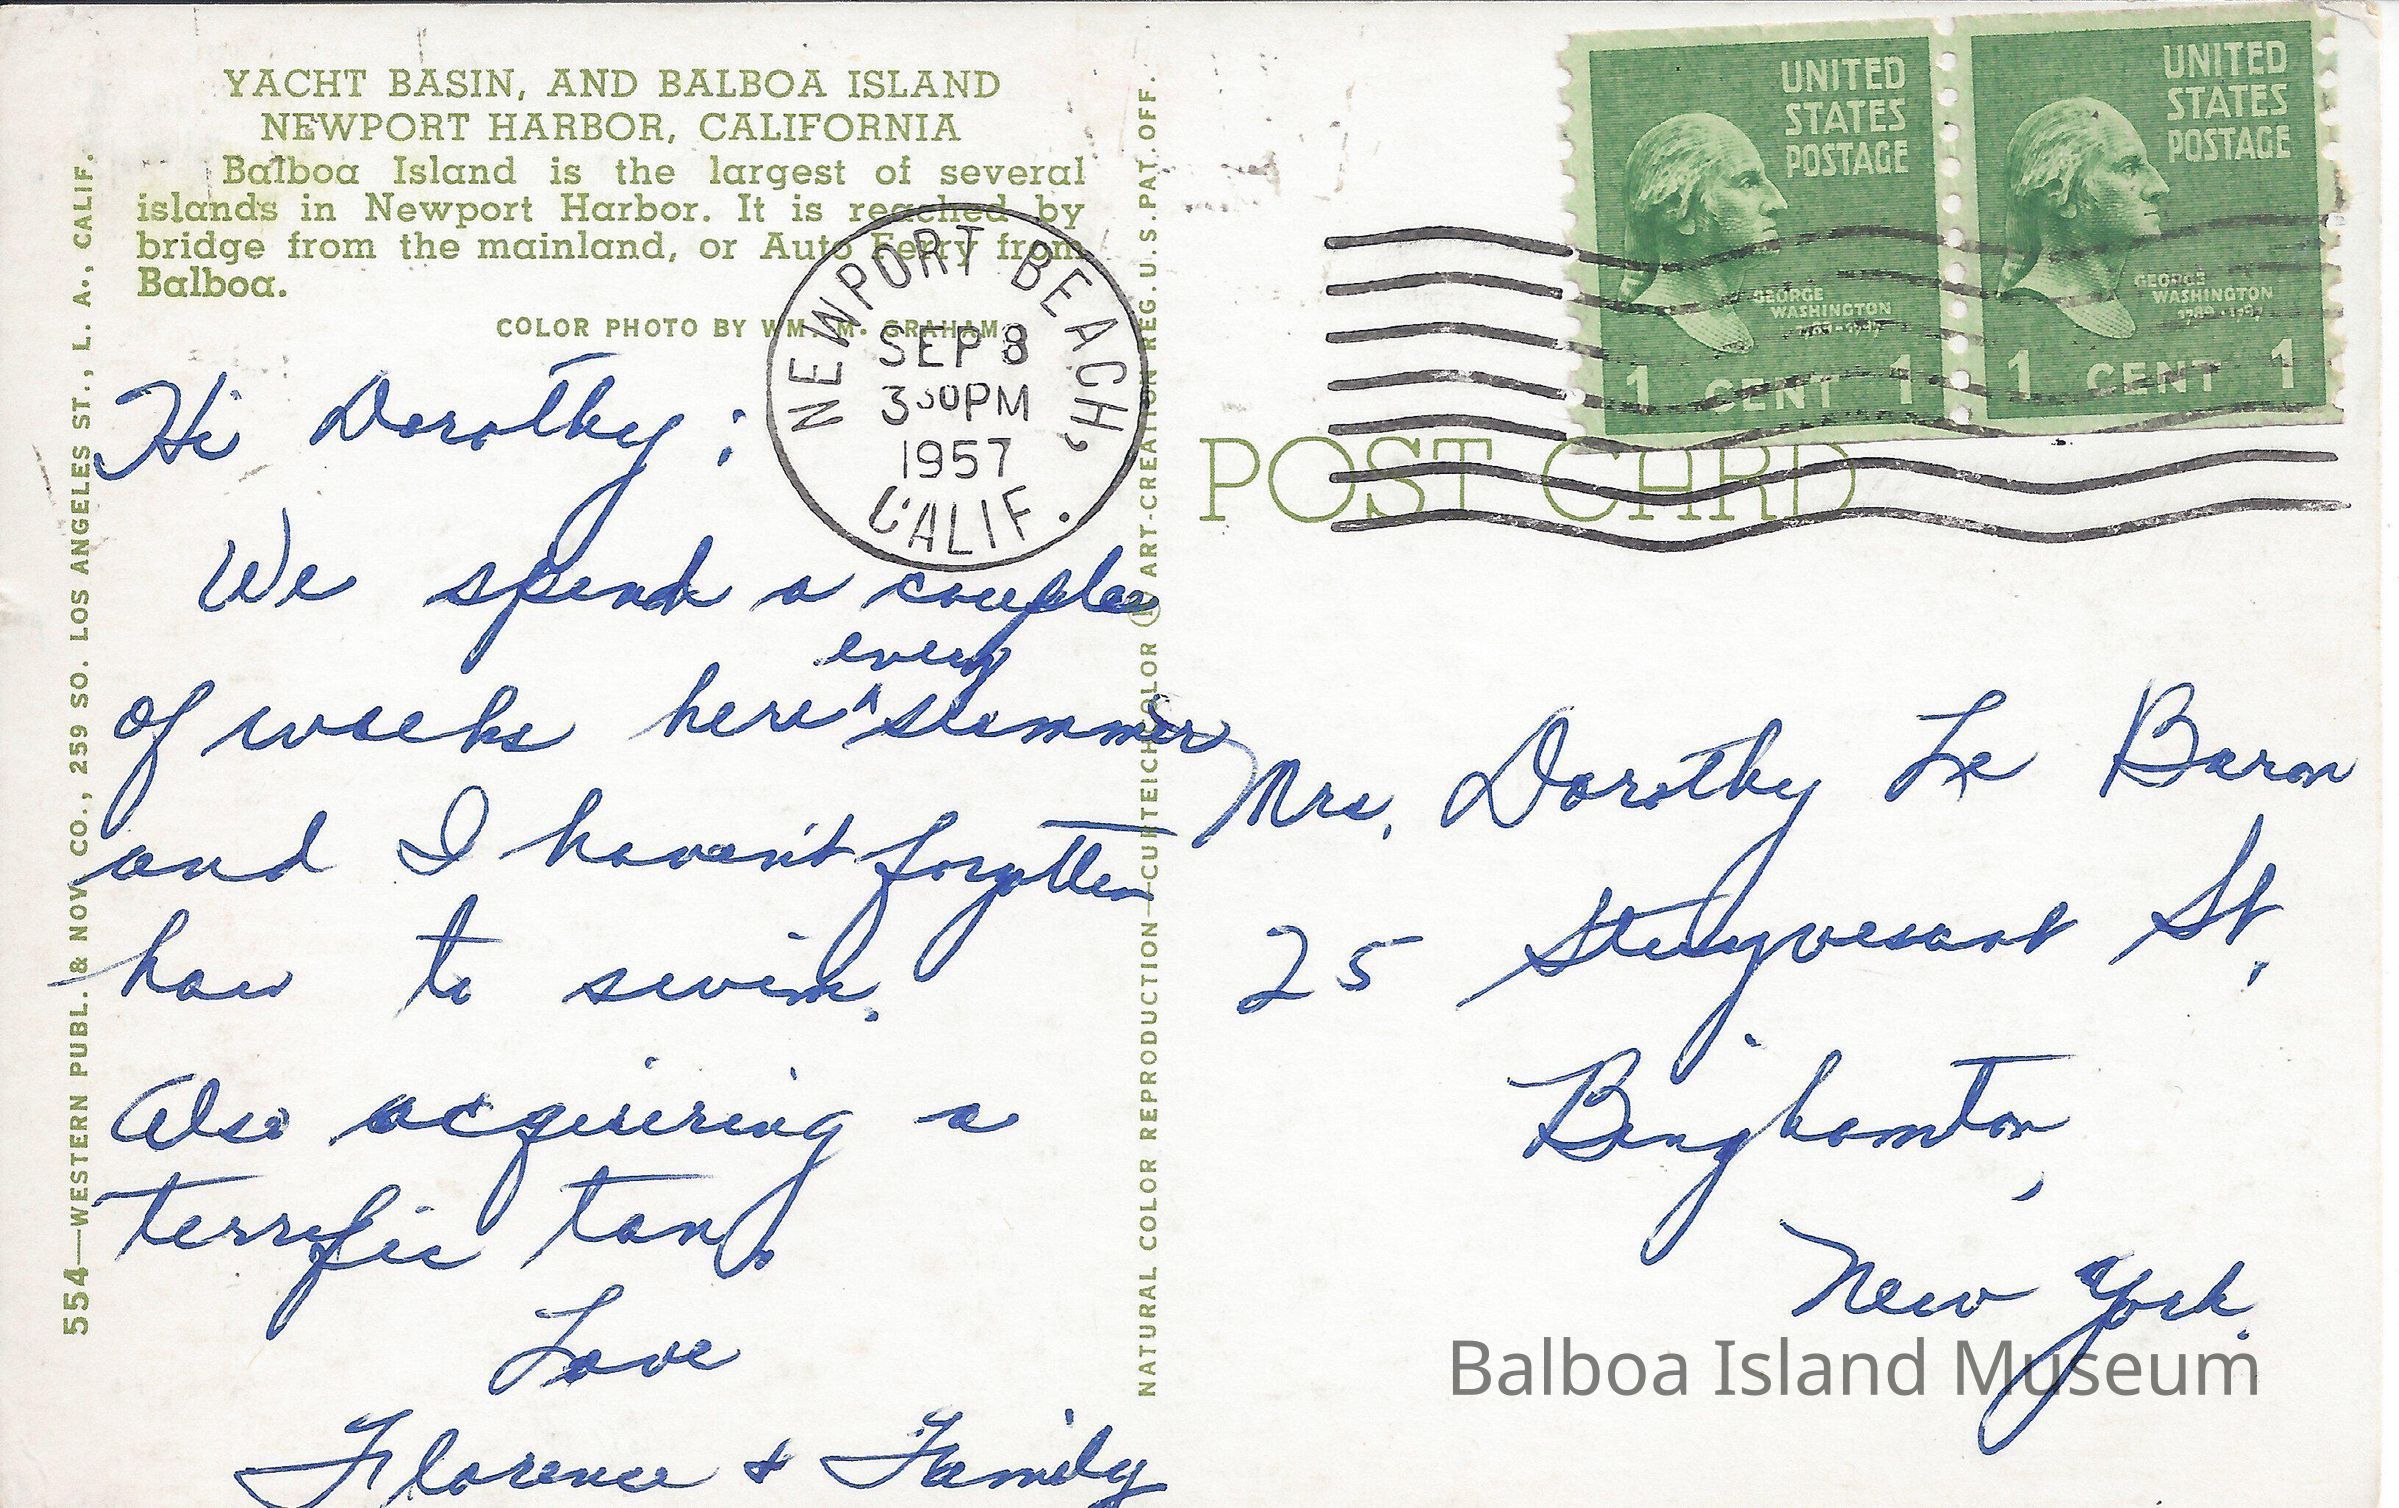 YACHT BASIN, AND BALBOA ISLAND
NEWPORT HARBOR, CALIFORNIA
Balboa Island is the largest of several
islands in Newport Harbor. It is reached by
bridge from the mainland, or Auto Ferry from
Balboa.
COLOR PHOTO BY WM. M. GRAHAM
Hi Dorothy:
We spend a couple
of weeks here every summer
and I haven't forgotten
how to swim.
Also acquiring a
terrific tan.
Love
Florence & Family
554—WESTERN PUBL. & NOV. CO., 259 SO. LOS ANGELES ST., L. A., CALIF.
NATURAL COLOR REPRODUCTION—CURTEICHCOLOR ® ART-CREATION REG. U.S. PAT. OFF.
NEWPORT BEACH,
SEP 8
3 30 PM
1957
CALIF.
UNITED
STATES
POSTAGE
GEORGE
WASHINGTON
1789-1797
1 CENT 1
UNITED
STATES
POSTAGE
GEORGE
WASHINGTON
1789-1797
1 CENT 1
POST CARD
Mrs. Dorothy Le Baron
25 Stuyvesant St.
Binghamton,
New York.
Balboa Island Museum